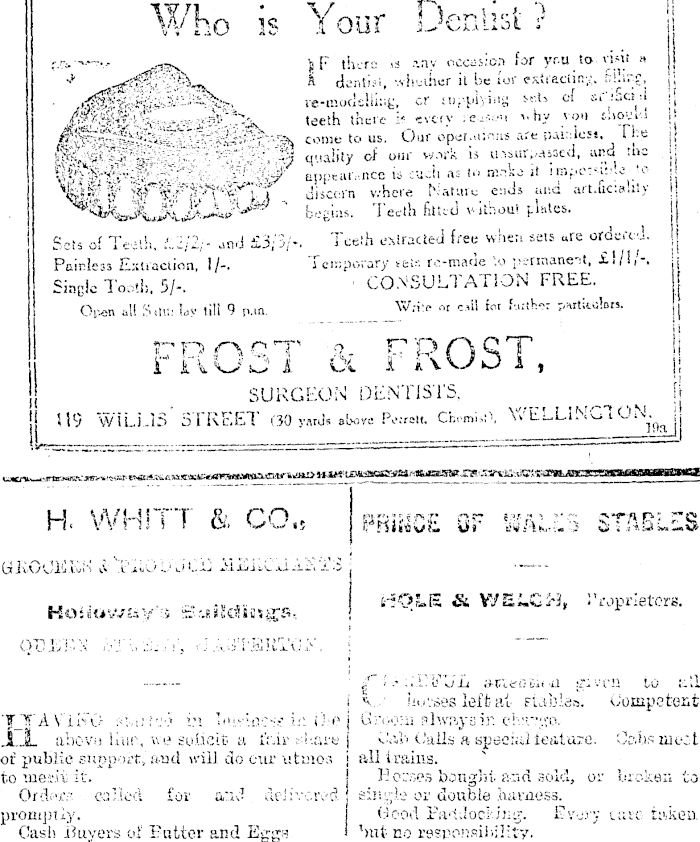 Who is Your Dentist?
IF there is any occasion for you to visit a
dentist, whether it be for extracting, filling,
re-modelling, or supplying sets of artificial
teeth there is every reason why you should
come to us. Our operations are painless. The
quality of our work is unsurpassed, and the
appearance is such as to make it impossible to
discern where Nature ends and artificiality
begins. Teeth fitted without plates.
Sets of Teeth, £2/2/- and £3/3/-.
Painless Extraction, 1/-.
Single Tooth, 5/-.
Open all Saturday till 9 p.m.
Teeth extracted free when sets are ordered.
Temporary sets re-made to permanent, £1/1/-.
CONSULTATION FREE.
Write or call for further particulars.
FROST & FROST,
SURGEON DENTISTS,
119 WILLIS STREET (30 yards above Perrett, Chemist), WELLINGTON.
19a
H. WHITT & CO.,
GROCERS & PRODUCE MERCHANTS
Holloway's Buildings,
QUEEN STREET, MASTERTON.
HAVING started in business in the
above line, we solicit a fair share
of public support, and will do our utmos
to merit it.
Orders called for and delivered
promptly.
Cash Buyers of Butter and Eggs
PRINCE OF WALES STABLES
HOLE & WELCH, Proprietors.
CAREFUL attention given to all
horses left at stables. Competent
Groom always in charge.
Cab Calls a special feature. Cabs meet
all trains.
Horses bought and sold, or broken to
single or double harness.
Good Paddocking. Every care taken
but no responsibility.